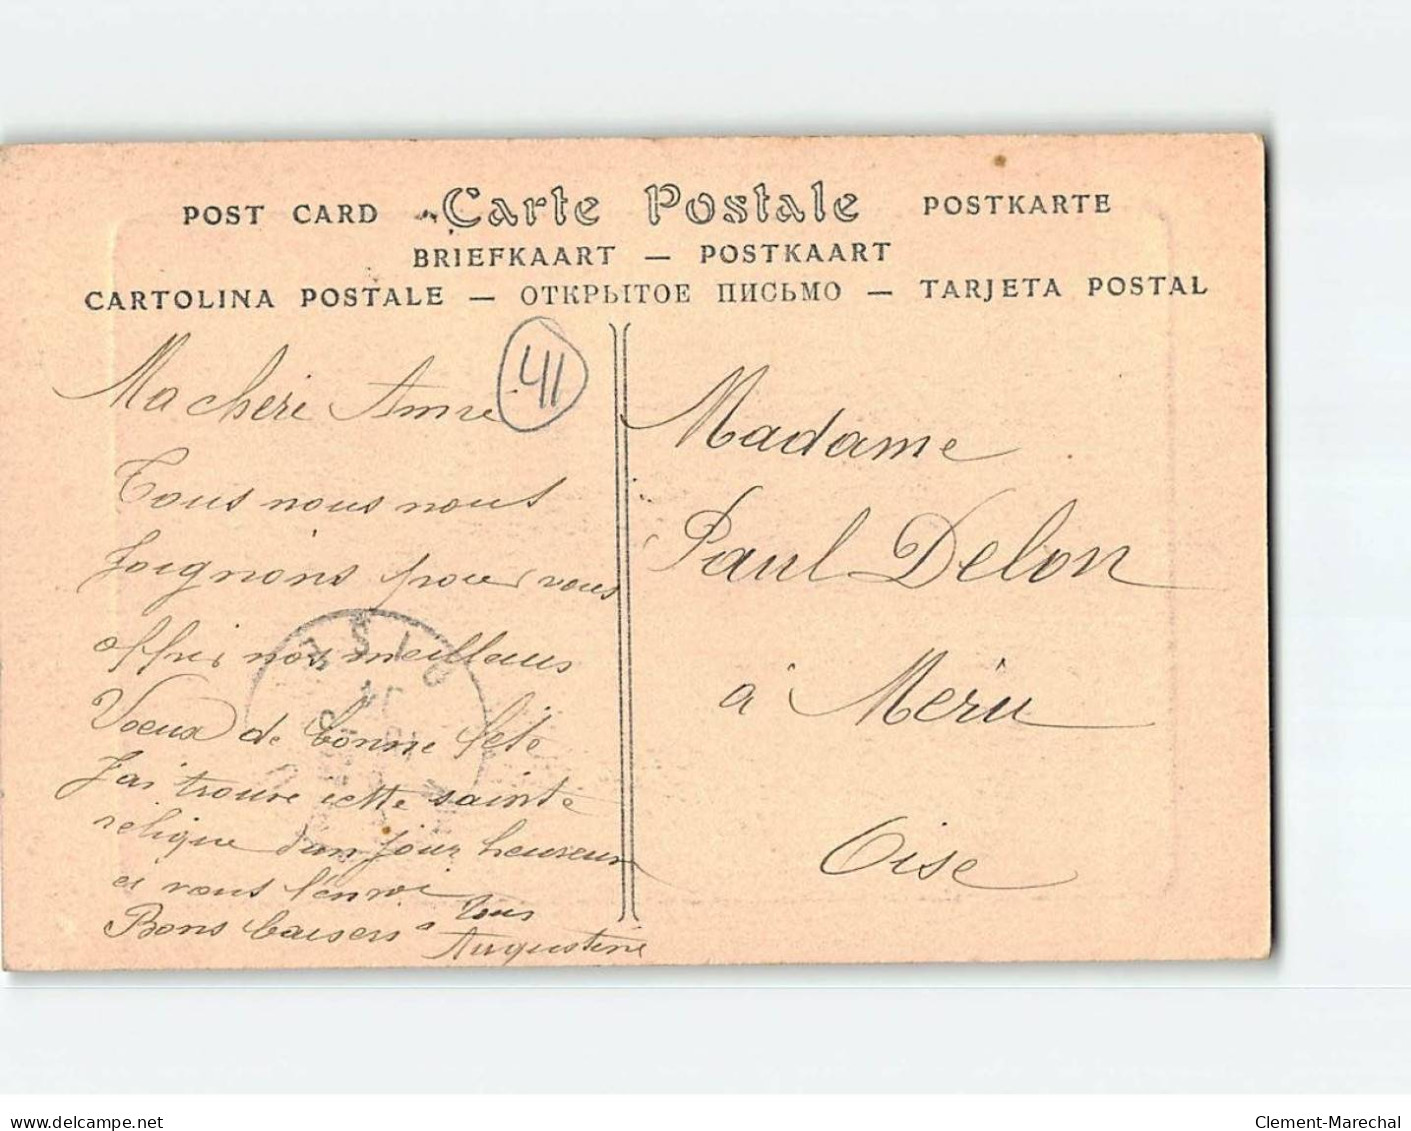 POST CARD Carte Postale POSTKARTE
BRIEFKAART — POSTKAART
CARTOLINA POSTALE — ОТКРЫТОЕ ПИСЬМО — TARJETA POSTAL
41
Ma chère Amie
Tous nous nous
joignons pour vous
offrir nos meilleurs
Voeux de bonne fête
J'ai trouvé cette sainte
relique d'un jour heureux
et vous l'envoi
Bons baisers à tous
Augustine
Madame
Paul Delon
à Meru
Oise
OISE
delcampe.net
Clement-Marechal